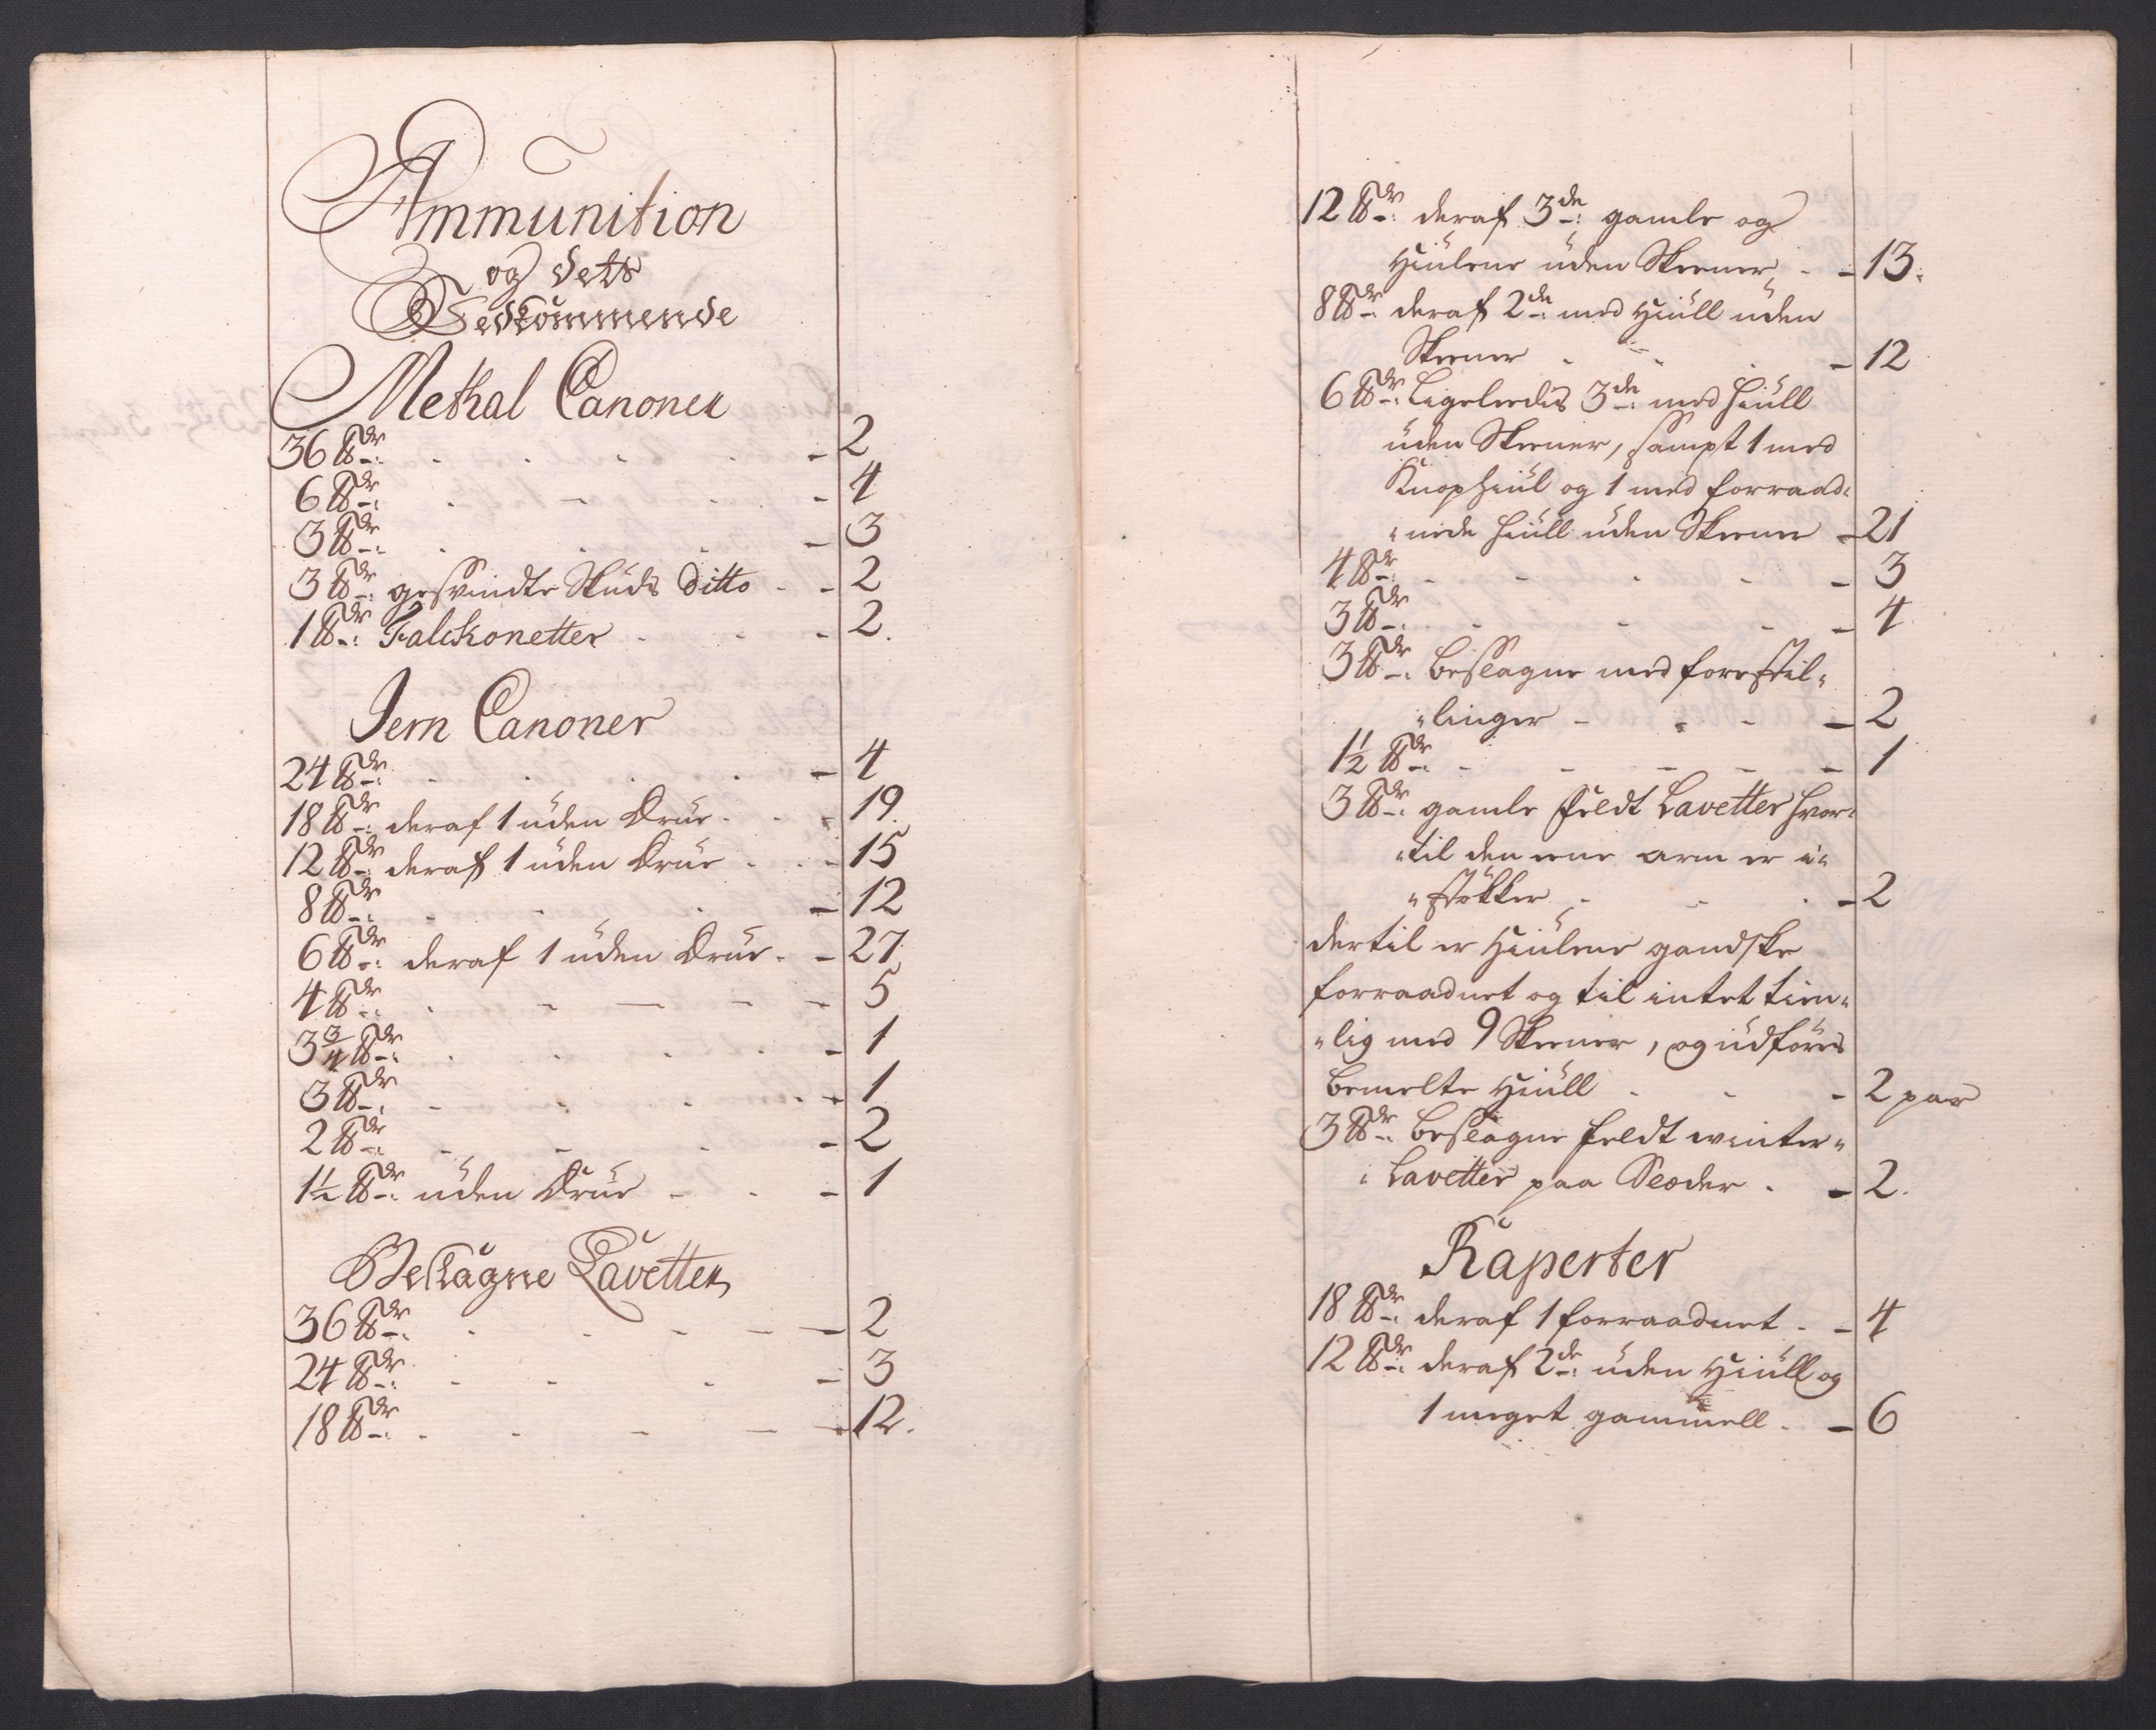 Ammunition
og dets
Vedkommende
Methal Canoner
36 ℔dr: - 2
6 ℔dr: - 4
3 ℔dr: - 3
3 ℔dr: gesvindte Skuds Ditto - 2
1 ℔dr: Falckonetter - 2.
Jern Canoner
24 ℔dr: - 4
18 ℔dr: deraf 1 uden Drue - 19
12 ℔dr: deraf 1 uden Drue - 15
8 ℔dr: - 12
6 ℔dr: deraf 1 uden Drue - 27
4 ℔dr: - 5
3 3/4 ℔dr: - 1
3 ℔dr: - 1
2 ℔dr: - 2
1 1/2 ℔dr: uden Drue - 1
Beslagne Lavetter
36 ℔dr: - 2
24 ℔dr: - 3
18 ℔dr: - 12.
12 ℔dr: deraf 3de: gamle og
Hiulene uden Skeener - 13.
8 ℔dr: deraf 2de: med Hiull uden
Skeener - 12
6 ℔dr: Ligeleedis 3de: med hiull
uden Skeener, sampt 1 med
Knophiul og 1 med forraad-
nede hiull uden Skeener - 21
4 ℔dr: - 3
3 ℔dr: - 4
3 ℔dr: beslagne med forestil-
linger - 2
1 1/2 ℔dr: - 1
3 ℔dr: gamle feldt Lavetter hvor-
til den eene arm er i-
støkker - 2
dertil er Hiulene gandske
forraadnet og til intet tien-
lig med 9 Skeener, og udføres
bemelte Hiull - 2 par
3 ℔dr: beslagne feldt winter-
Lavetter paa Slæder - 2.
Raperter
18 ℔dr: deraf 1 forraadnet - 4
12 ℔dr: deraf 2de: uden Hiull og
1 meget gammell - 6